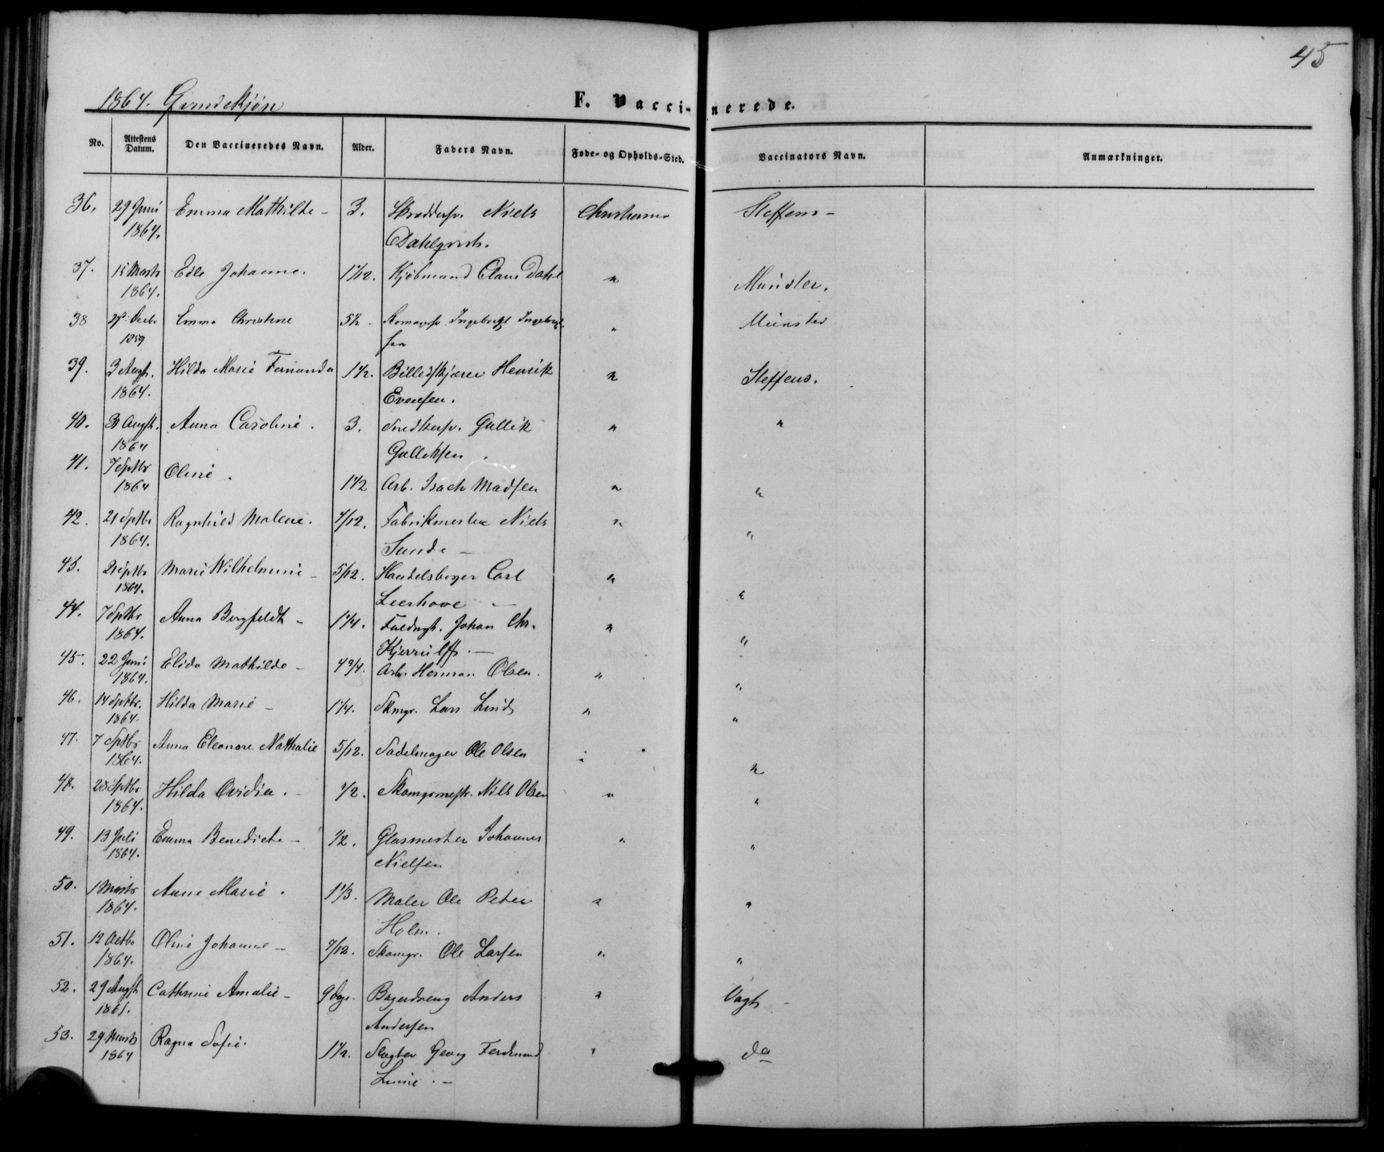 45
1864. Qvindekjøn
F. Vaccinerede.
No. Attestens Datum. Den Vaccineredes Navn. Alder. Faders Navn. Føde- og Opholds-Sted. Vaccinators Navn. Anmærkninger.
36. 29 Juni Emma Mathilde - 3. Skrædersv. Niels Christiania Steffens -
1864. Dahlqvist.
37. Marts Edle Johanne. 1 1/12. Kjøbmand Claus Dahl " Münster.
1864.
38 Decbr Emma Christine 5 1/2. Ingebrigt Ingebrigt- " Münster
1859 sen
39. 3 Augst. Hilda Marie Fernanda 1 1/2. Billedskjærer Henrik " Steffens.
1864. Evensen.
40. Augst. Anna Caroline. 3. Snedkersv. Gullik " "
1864 Gulliksen
41. 7 Septbr Oline. 1 1/2 Arb. Isach Madsen " "
1864
42. 21 Septbr Ragnhild Malene. 7/12. Fabrikmester Niels " "
1864. Sunde -
43. 21 Septbr Marie Wilhelmine - 5/12. Handelsborger Carl " "
1864. -
44. 7 Septbr Anna Bergfeldt - 1 1/4. Fuldmgt. Johan Chr. " "
1864. Kjerrulff. -
45. 22 Juni Elida Mathilde - 4 3/4. Arb. Herman Olsen. " "
1864.
46. 14 Septbr. Hilda Marie - 1 1/4. Skomgr. Lars Lund " "
1864.
47. 7 Septbr Anna Eleonore Nathalie 5/12. Sadelmager Ole Olsen " "
1864.
48. 28 Septbr Hilda Ovidia. 1/2. Skomgrmestr. Nils Olsen " "
1864.
49. 13 Juli Emma Benedicte - 1/2. Glasmester Johannes " "
1864. Nielsen
50. 1 Marts Anne Marie. 1 1/3. Maler Ole Peter " "
1864. Holm.
51. 12 Octbr Oline Johanne - 7/12. Skomgr. Ole Larsen " "
1864.
52. 29 Augst Cathrine Amalie - 9 Dage. Bagerdreng Anders " Vogt -
1861. Andersen
53. 29 Marts Ragna Sofie. 1 1/2. Slagter Georg Ferdinand " do
1864 -